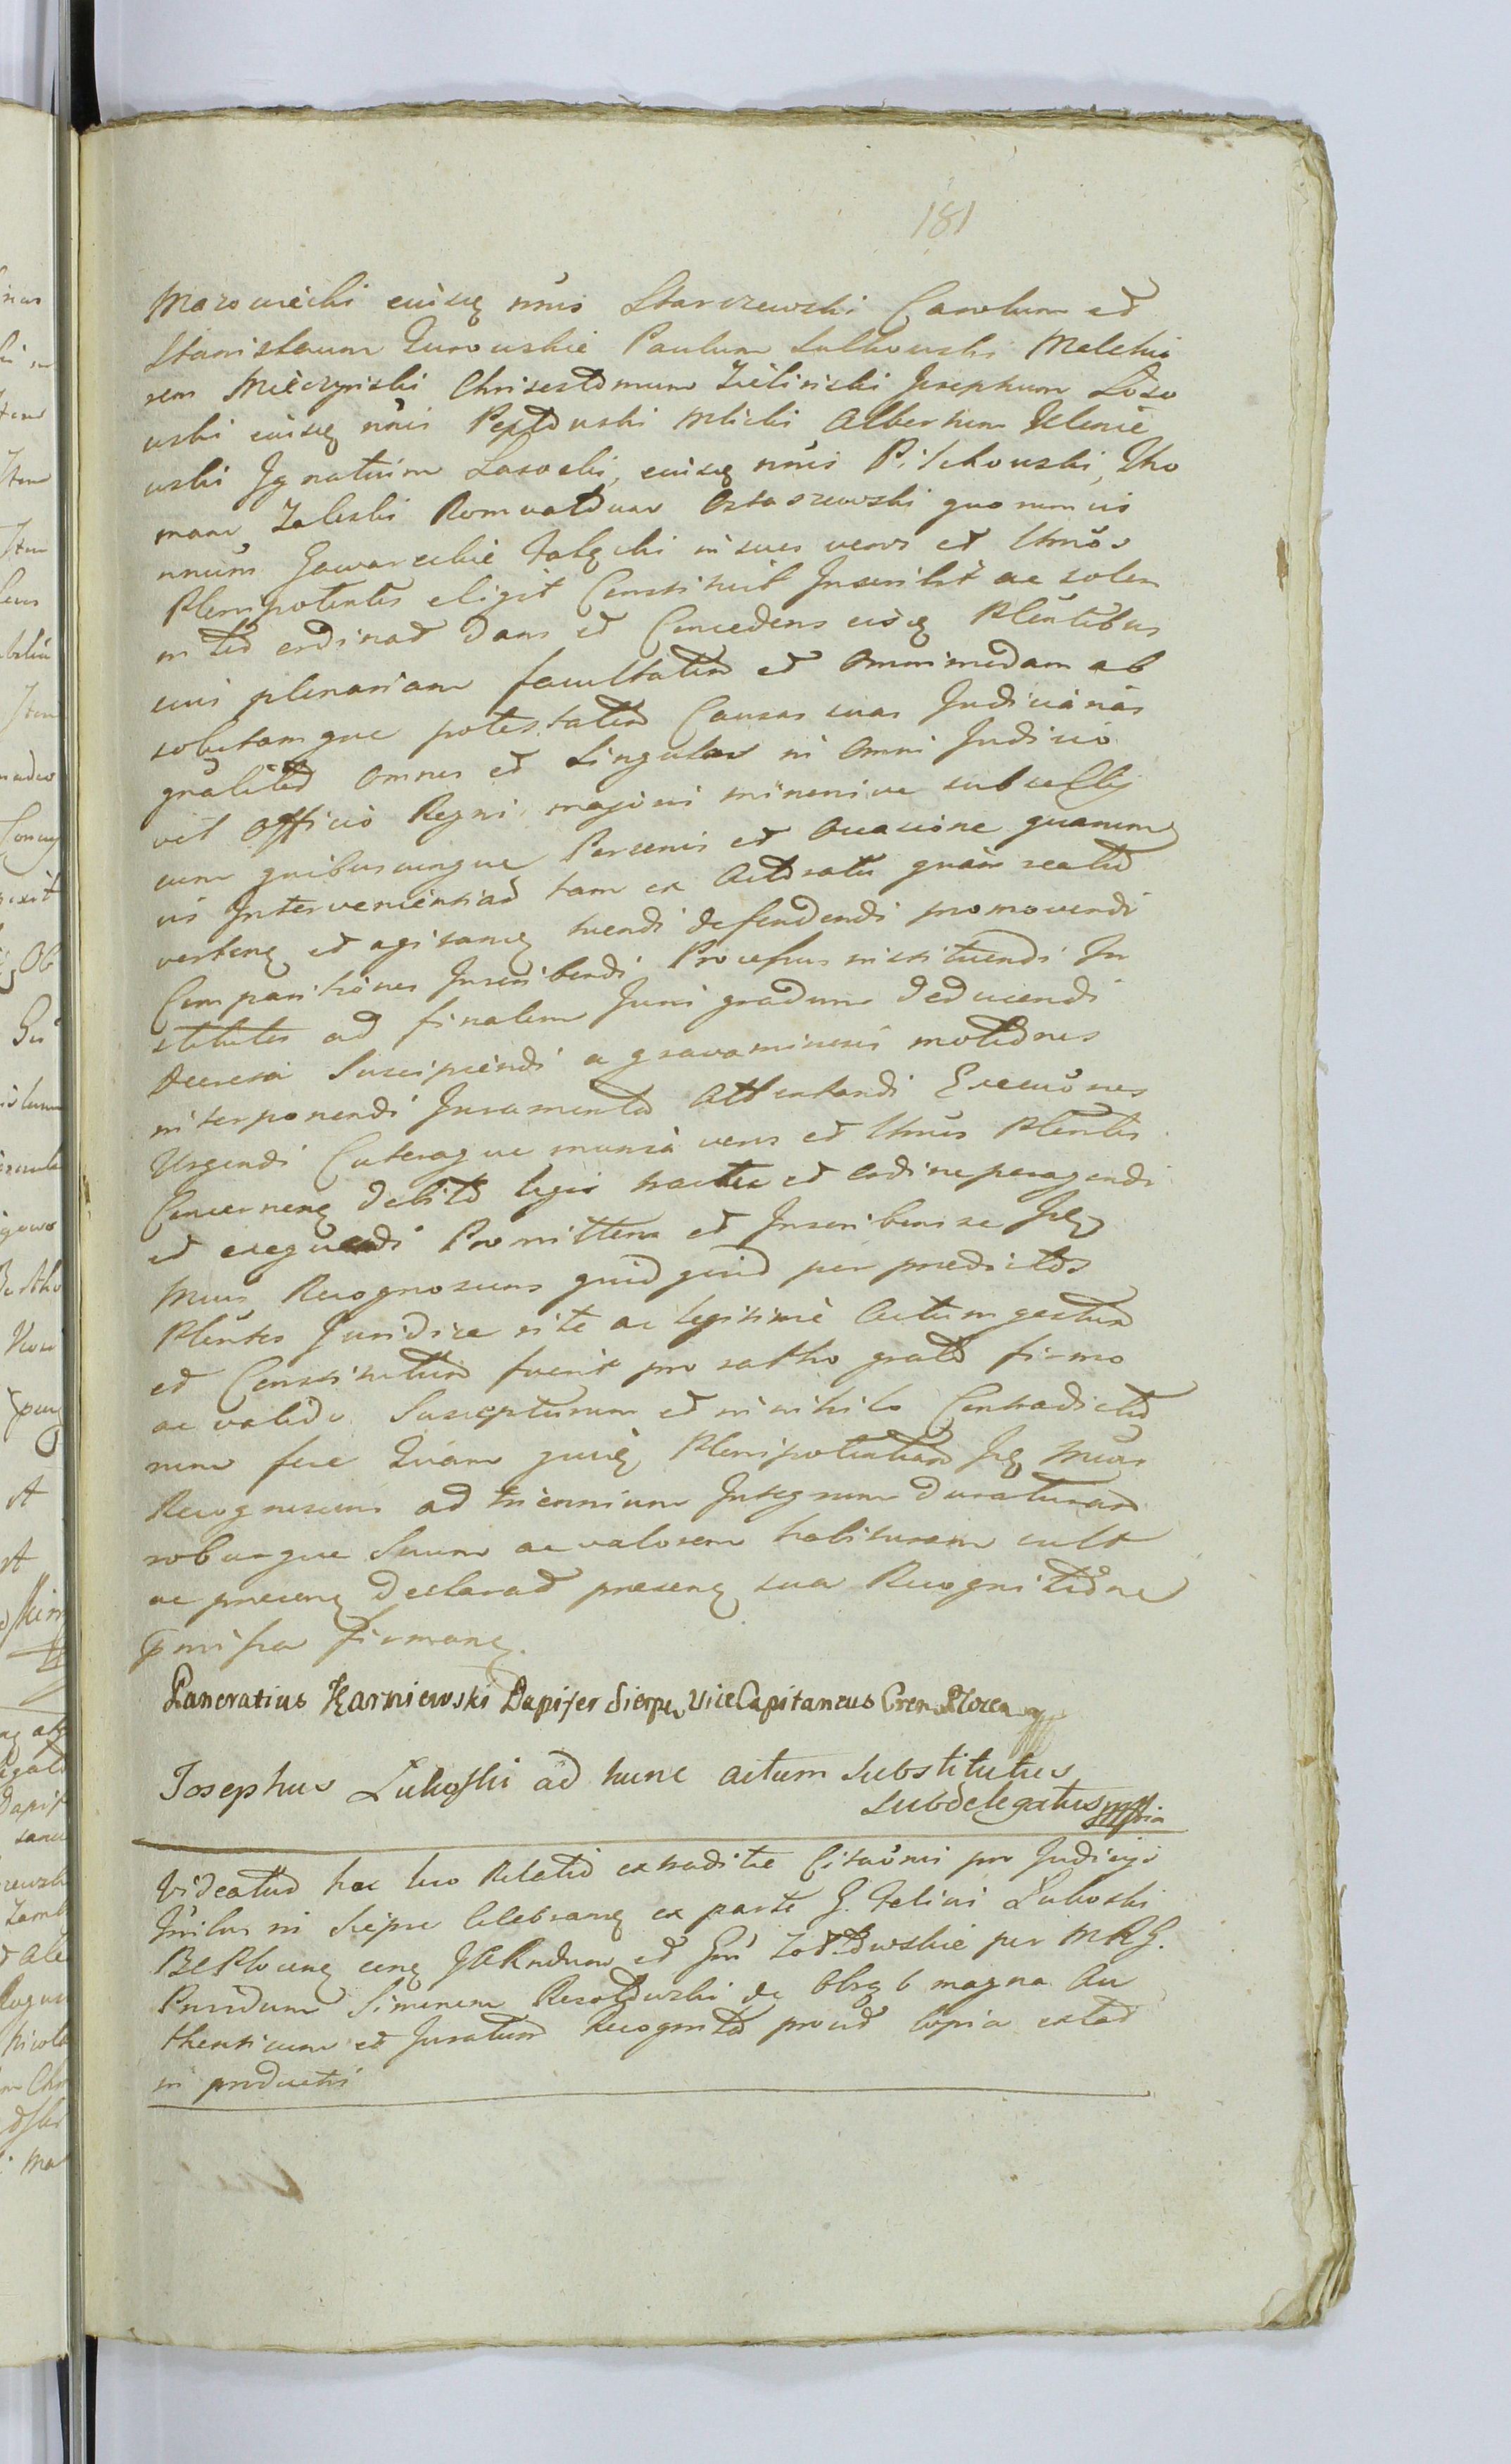 181
Mazowiecki eiusq nnis Starczewski Carolum et
Stanislaum Zurowskie Paulum Sulkowski Melchio
rem Mieczynski Chrisostomum Zielinski Josephum Lozo
wski eiusq nnis Mlicki Albertum Klenie
wski Ignatium Lasocki, eiusq nnis Pilchowski, Tho
mam Zaleski Romualdum Ostaszewski quorumvis
nnum Gawareckie in suos veros et Lttmos
Plenipotentes eligit Constituit Inscribit ac solen
niter ordinat Dans et Concedens eisq Plentibus
suis plenariam facultatem et Omnimodam ab
solutamque potestatem Causas suas Judiciarias
gnaliter Omnes et Singulas in Omni Judicio
vel Officio Regni majori minorive subsellij
cum quibusvis cunque Personis et Occasione quarumq
vis Intervenientiar tam ex Actoratu quam reatu
vertenq et agitanq tuendi defendendi promovendi
Comparitiones Inscribendi Processus instituendi In
stitutos ad finalem Juris gradum deducendi
Decreta Suscipiendi a gravaminosis motiones
interponendi Juramenta Attentandi Execuones
Urgendi Caeteraque munia veros et Lttmos Plentes
Concernenq debito legis tractu et ordine peragendi
et exequendi Promittens et Inscribens se Ips
Mcus Recognoscens quidquid per praedictos
Plentes Juridice rite ac legitime Actum gestum
et Constitutum fuerit pro ratho grato firmo
ac valido Suscepturum et in nihilo Contradictu
rum fore Quam quidq Plenipotentiam Ips Mcus
Recognoscens ad triennium Integrum duraturam
roburque Suum ac valorem habituram vult
ac presenq declarat presenq sua Recognitione
pmissa firmanq.
Pancratius Karniewski Dapifer Sierpc. Vice Capitaneus Cren. Plocen. mpp
Josephus Lukoski ad hunc actum Substitutus
Subdelegatus mppria
Videatur hoc loco Relatio extraditae Citaonis pro Judicijs
in Sierpc Celebranq ex parte G. Felicis Lukoski
per MRG.
Simonem de magna Au
thenticum et Juratum Recognita prout Copia extat
in productis